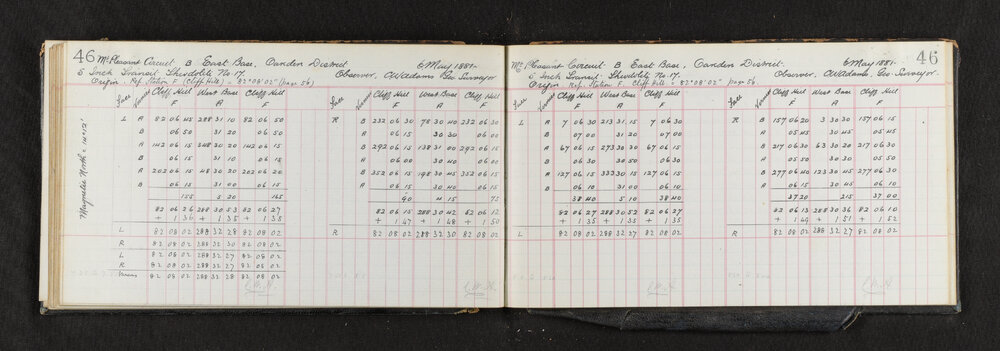 46
Mt. Pleasant Circuit B East Base, Camden District. 6 May 1881.
5 Inch Transit Theodolite No 17. Observer, Geo. Surveyor
Origin. Ref. Station F (Cliff Hill) = 82°08'02" (page 56)
Face Vernier Cliff Hill West Base Cliff Hill
F A F
Magnetic North
L A 82 06 45 288 31 10 82 06 50
B 06 50 31 20 06 50
A 142 06 15 348 30 20 142 06 15
B 06 15 31 10 06 15
A 202 06 15 48 30 20 202 06 20
B 06 15 31 00 06 15
155 5 20 165
82 06 26 288 30 53 82 06 27
+ 1 36 + 1 35 + 1 35
L 82 08 02 288 32 28 82 08 02
R 82 08 02 288 32 30 82 08 02
L 82 08 02 288 32 27 82 08 02
R 82 08 02 288 32 27 82 08 02
Means 82 08 02 288 32 28 82 08 02
Face Vernier Cliff Hill West Base Cliff Hill
F A F
R B 232 06 30 78 30 40 232 06 30
A 06 15 30 30 06 00
B 292 06 15 138 31 00 292 06 15
A 06 00 30 40 06 00
B 352 06 15 198 30 45 352 06 15
A 06 15 30 40 06 15
90 4 15 75
82 06 15 288 30 42 82 06 12
+ 1 47 + 1 48 + 1 50
R 82 08 02 288 32 30 82 08 02
46
Mt. Pleasant Circuit B East Base, Camden District. 6 May 1881.
5 Inch Transit Theodolite No 17. Observer, Geo. Surveyor
Origin Ref. Station F. Cliff Hill = 82°08'02" (page 56)
Face Vernier Cliff Hill West Base Cliff Hill
F A F
L A 7 06 30 213 31 15 7 06 30
B 07 00 31 20 07 00
A 67 06 15 273 30 30 67 06 15
B 06 30 30 50 06 30
A 127 06 15 333 30 15 127 06 15
B 06 10 31 00 06 10
38 40 5 10 38 40
82 06 27 288 30 52 82 06 27
+ 1 35 + 1 35 + 1 35
L 82 08 02 288 32 27 82 08 02
Face Vernier Cliff Hill West Base Cliff Hill
F A F
R B 157 06 20 3 30 30 157 06 20
A 05 45 30 45 05 45
B 217 06 30 63 30 20 217 06 30
A 05 50 30 30 05 50
B 277 06 40 123 30 45 277 06 30
A 06 15 30 45 06 15
37 20 215 37 00
82 06 13 288 30 36 82 06 10
+ 1 49 + 1 51 + 1 52
R 82 08 02 288 32 27 82 08 02